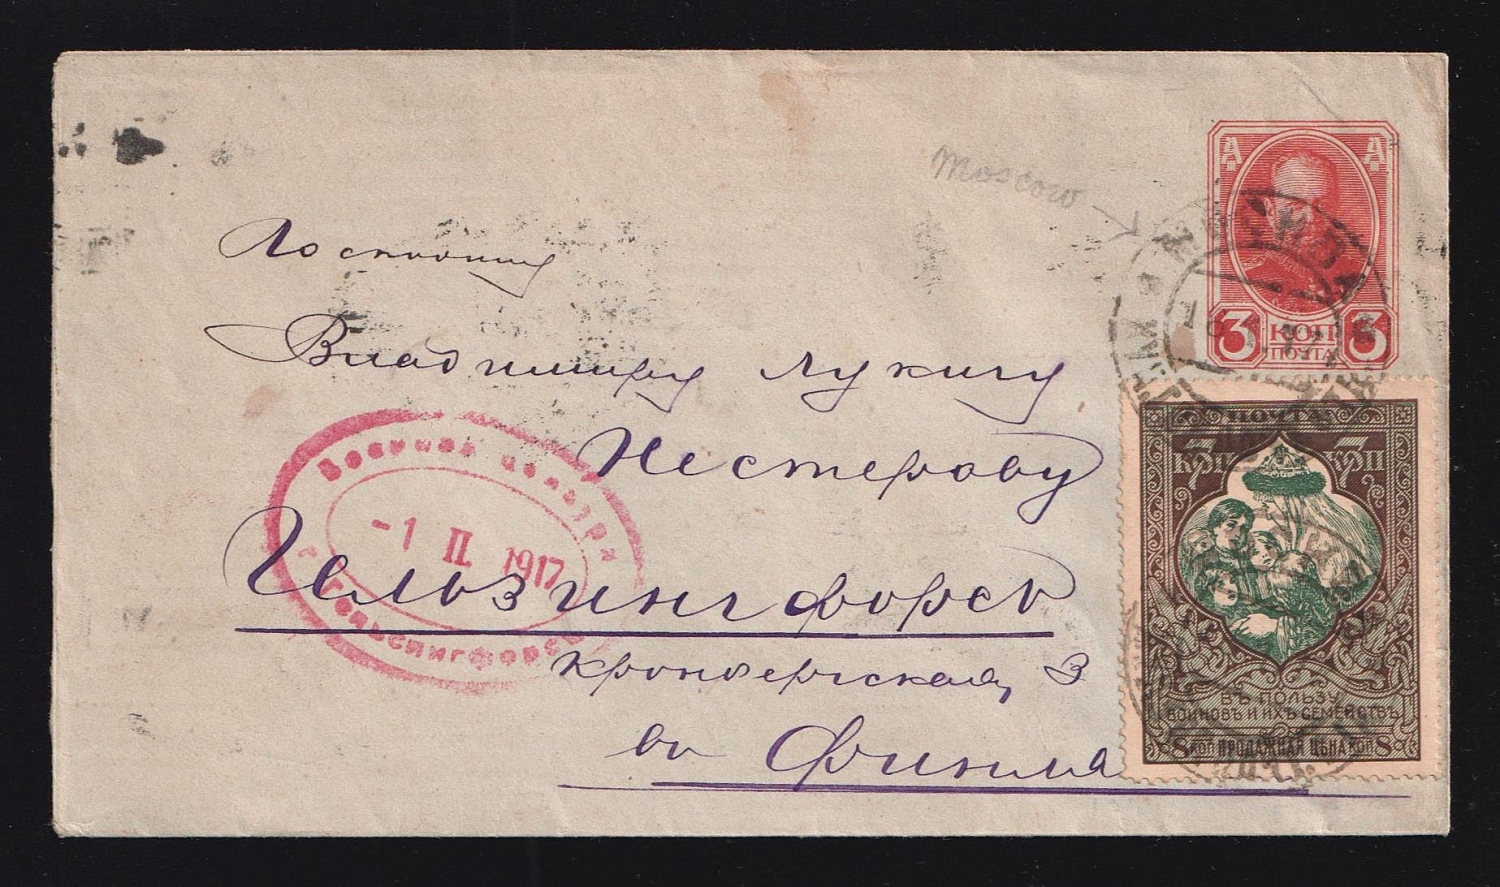 Moscow
А А
3 КОП 3
ПОЧТА
Господину
Владимиру Лукичу
Нестерову
Гельзингфорсъ
Кронбергская, 3
въ Финля
Военная цензура
-1 II 1917
г. Гельсингфорсъ
ПОЧТА
7 КОП 7 КОП
ВЪ ПОЛЬЗУ
ВОИНОВЪ И ИХЪ СЕМЕЙСТВЪ
8 КОП ПРОДАЖНАЯ ЦѢНА КОП 8